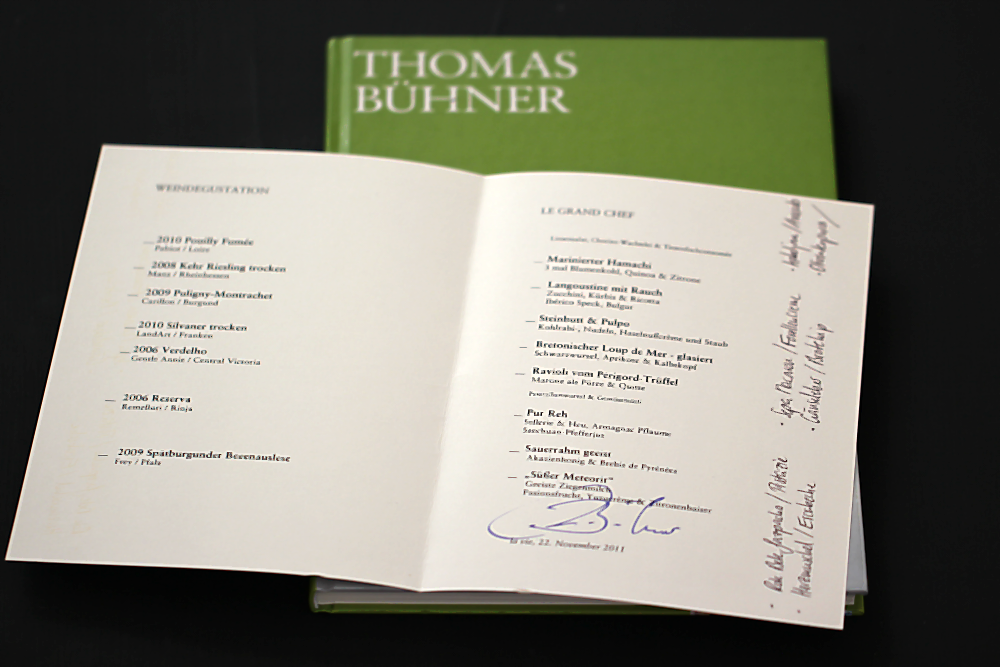 THOMAS
BÜHNER
WEINDEGUSTATION
2010 Pouilly Fumée
Pabiot / Loire
2008 Kehr Riesling trocken
Manz / Rheinhessen
2009 Puligny-Montrachet
Carillon / Burgund
2010 Silvaner trocken
LandArt / Franken
2006 Verdelho
Gentle Annie / Central Victoria
2006 Reserva
Remelluri / Rioja
2009 Spätburgunder Beerenauslese
Frey / Pfalz
LE GRAND CHEF
Marinierter Hamachi
3 mal Blumenkohl, Quinoa & Zitrone
Langoustine mit Rauch
Zucchini, Kürbis & Ricotta
Ibérico Speck, Bulgur
Steinbutt & Pulpo
Kohlrabi-, Nudeln, Haselnußcrème und Staub
Bretonischer Loup de Mer - glasiert
Schwarzwurzel, Aprikose & Kalbskopf
Ravioli vom Perigord-Trüffel
Marone als Püree & Quitte
Petersilienwurzel &
Pur Reh
Sellerie & Heu, Armagnac Pflaume
Szechuan-Pfefferjus
Sauerrahm geeist
Akazienhonig & Brebis de Pyrénées
„Süßer Meteorit“
Geeiste Ziegenmilch
Passionsfrucht, Yuzucrème & Zitronenbaiser
la vie, 22. November 2011